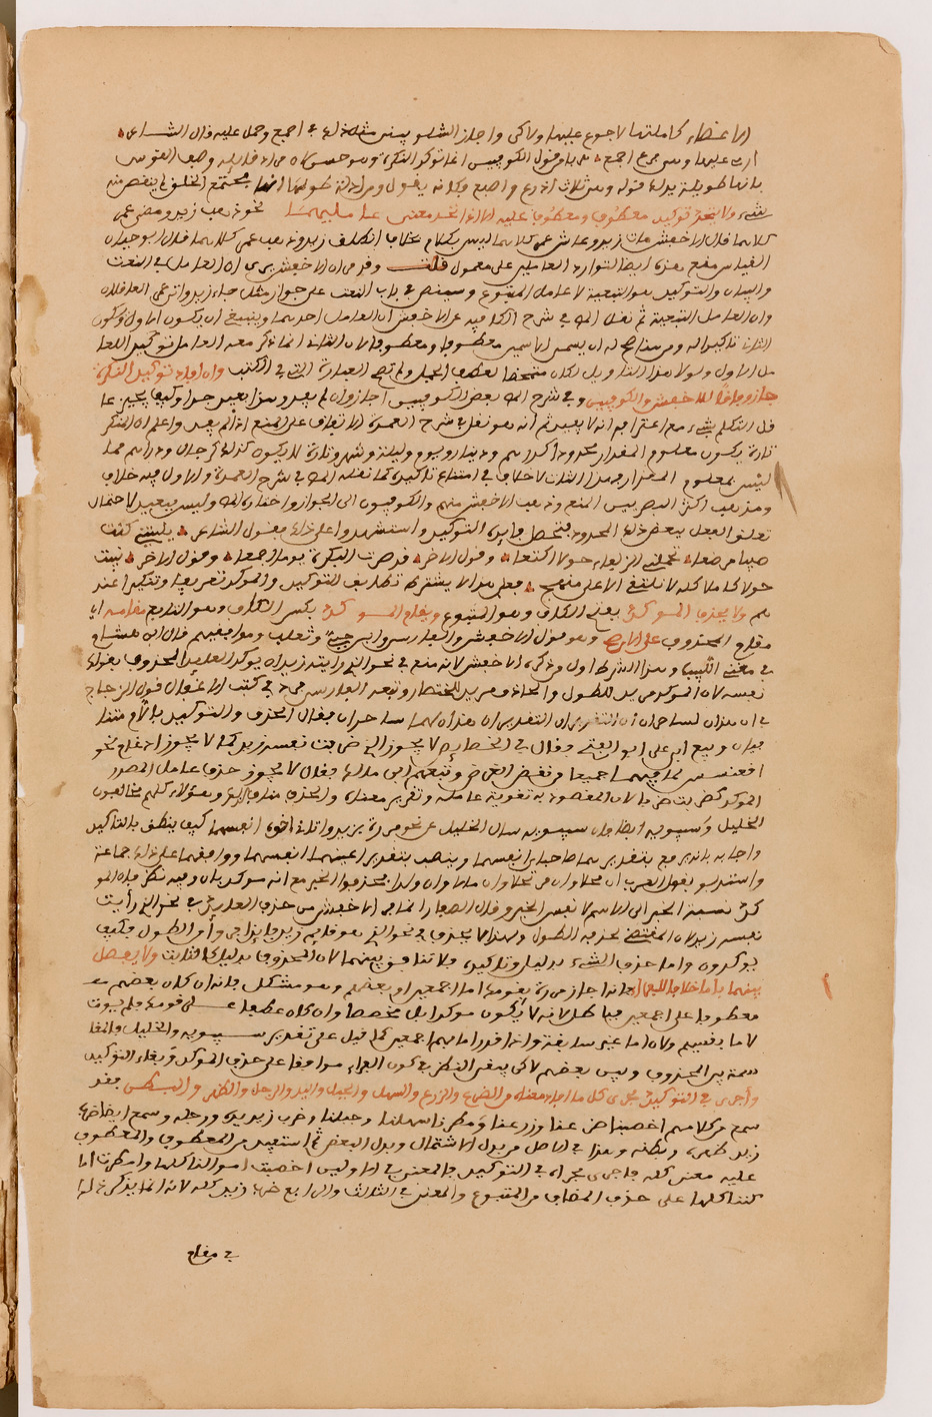 الاعضاء كاملتها لا جوع عليها ولاكى واجاز الشلوبين مثل ذلك في اجمع وحمل عليه قال الشاعر
ارمى عليها وهي فرع اجمع وقول الكوفيين انما توكد النكرة وهو حسن
بانها طويلة يدل قوله وهي ثلاث اذرع واصبع وكانه يقول مجتمع الخلق لم ينقص منه
شيء ولا يتحد توكيد معطوف ومعطوف عليه الا اذا اتحد معنى عامليهما نحو ذهب زيد ومضى عمرو
كلاهما قال الاخفش مات زيد وعاش عمرو كلاهما ليس بكلام قال ابو حيان
القياس منع هذه ايضا لتوارد العاملين على معمول قلت الاخفش يرى ان العامل في النعت
والبيان والتوكيد هو التبعية لا عامل المتبوع وسينص في باب النعت على جواز مثل جاء زيد واتى عمرو العاقلان
وان العامل التبعية ثم نقل في شرح الكافية عن الاخفش ان العامل احدهما وينبغي ان يكون الاول ويكون
الثاني تاكيدا له
مل الاول ولولا هذا التاويل لكان وان افاد توكيد النكرة
جاز وفاقا للاخفش والكوفيين وفي شرح بعض الكوفيين اجازه وان لم يفد وهذا بعيد جدا وكيف يجيز عا
قل التكلم بشيء مع اعترافه انه لا يفيد ثم انه هو نقل في شرح العمدة الاتفاق على المنع اذا لم يفد واعلم ان النكرة
تارة يكون معلوم المقدار محدودا كدرهم ودينار ويوم وليلة وشهر وتارة لا يكون كذلك كرجال ودراهم مما
ليس بمعلوم المقدار فهذا الثاني لا خلاف في امتناع تاكيده كما نقله في شرح العمدة والاول فيه خلاف
ومذهب اكثر البصريين المنع وذهب الاخفش منهم والكوفيون الى الجواز واختاره وليس ببعيد لاحتمال
تعلق الفعل ببعض ذلك المحدود فتحصل فايدة التوكيد واستشهدوا على ذلك بقول الشاعر يا ليتني كنت
صبيا مرضعا تحملني الذلفاء حولا اكتعا وقول الاخر قد صرت البكرة يوما اجمعا وقول الاخر ثبت
حولا كاملا كله لا نلتقي الا على منهج فعلى هذا لا يشترط تطابق التوكيد والموكد تعريفا وتنكيرا عند
هم ولا يحذف الموكد بفتح الكاف وهو المتبوع ويقام الموكد بكسر الكاف وهو التابع مقامه اي
مقام المحذوف على الاصح وهو قول الاخفش والفارسي وابن جني وثعلب ومن وافقهم قال ابن هشام
في مغني اللبيب وهذا الشرط اول من ذكره الاخفش لانه منع في نحو الذي رايت زيد ان يوكد العايد المحذوف بقوله
نفسه لان الموكد مريد للطول والحاذف مريد للاختصار وتبعه الفارسي فرد في كتب الاغفال قول الزجاج
في ان هذان لساحران ان التقدير ان هذان لهما ساحران فقال الحذف والتوكيد باللام متنا
فيان وتبع ابا علي ابو الفتح فقال في الخصايص لا يجوز الذي ضربت نفسه زيد كما لا يجوز ادغام نحو
اقعنسس لما فيهما جميعا من نقض الغرض وتبعهم ابن مالك فقال لا يجوز حذف عامل المصدر
الموكد كضربت ضربا لان المقصود به تقوية عامله وتقرير معناه والحذف مناف لذلك وهؤلاء كلهم مخالفون
الخليل وسيبويه ايضا فان سيبويه سال الخليل عن نحو مررت بزيد واتاني اخوه انفسهما كيف ينطق بالتاكيد
واجابه بانه يرفع بتقدير هما صاحباي انفسهما وينصب بتقدير اعنيهما انفسهما ووافقهما على ذلك جماعة
واستدلوا بقول العرب ان محلا وان مرتحلا وان مالا وان ولدا فحذفوا الخبر مع انه موكد بان وفيه نظر فان المو
كد نسبة الخبر الى الاسم لا نفس الخبر وقال الصفار انما فر الاخفش من حذف العايد في نحو الذي رأيت
نفسه زيد لان المقتضي لحذفه الطول ولهذا لا يحذف في نحو الذي هو قايم زيد فاذا فروا من الطول فكيف
يوكدون واما حذف الشيء بدليل وتاكيده فلا تنافي بينهما لان المحذوف بدليل كالثابت ولا يفصل
بينهما باما خلافا للفراء فانه اجاز مررت بقومك اما اجمعين او بعضهم وهو مشكل فانه ان كان بعضهم
معطوفا على اجمعين فباطل لانه لا يكون موكدا بل مخصصا وان كان عطفا على قومك فلم يوت
لاما بقسيم ولان اما غير سابقة واذا قدر اما بهم اجمعين كما قيل على تقدير سيبويه والخليل
سمة بين المحذوف وبين بعضهم لا كى يبقى النظر في كون الفراء موافقا على حذف الموكد وبقاء التوكيد
وأجرى في التوكيد مجرى كل ما افاد معناه من الضرع والزرع والسهل والجبل واليد والرجل والظهر والبطن فقد
سمع من كلامهم اخصبنا ضرعنا وزرعنا ومطرنا سهلنا وجبلنا وضرب زيد يده ورجله وسمع ايضا ضرب
زيد ظهره وبطنه وهذا في الاصل من بدل الاشتمال وبدل البعض ثم استفيد من المعطوف والمعطوف
عليه معنى كله فاجرى مجراه في التوكيد فالمعنى في الاولين اخصبت اموالنا كلها وامطرت اما
كننا كلها على حذف المضاف من المتبوع والمعنى في الثالث والرابع ضرب زيد كله لانه انما يذكر ذلك
في مقام